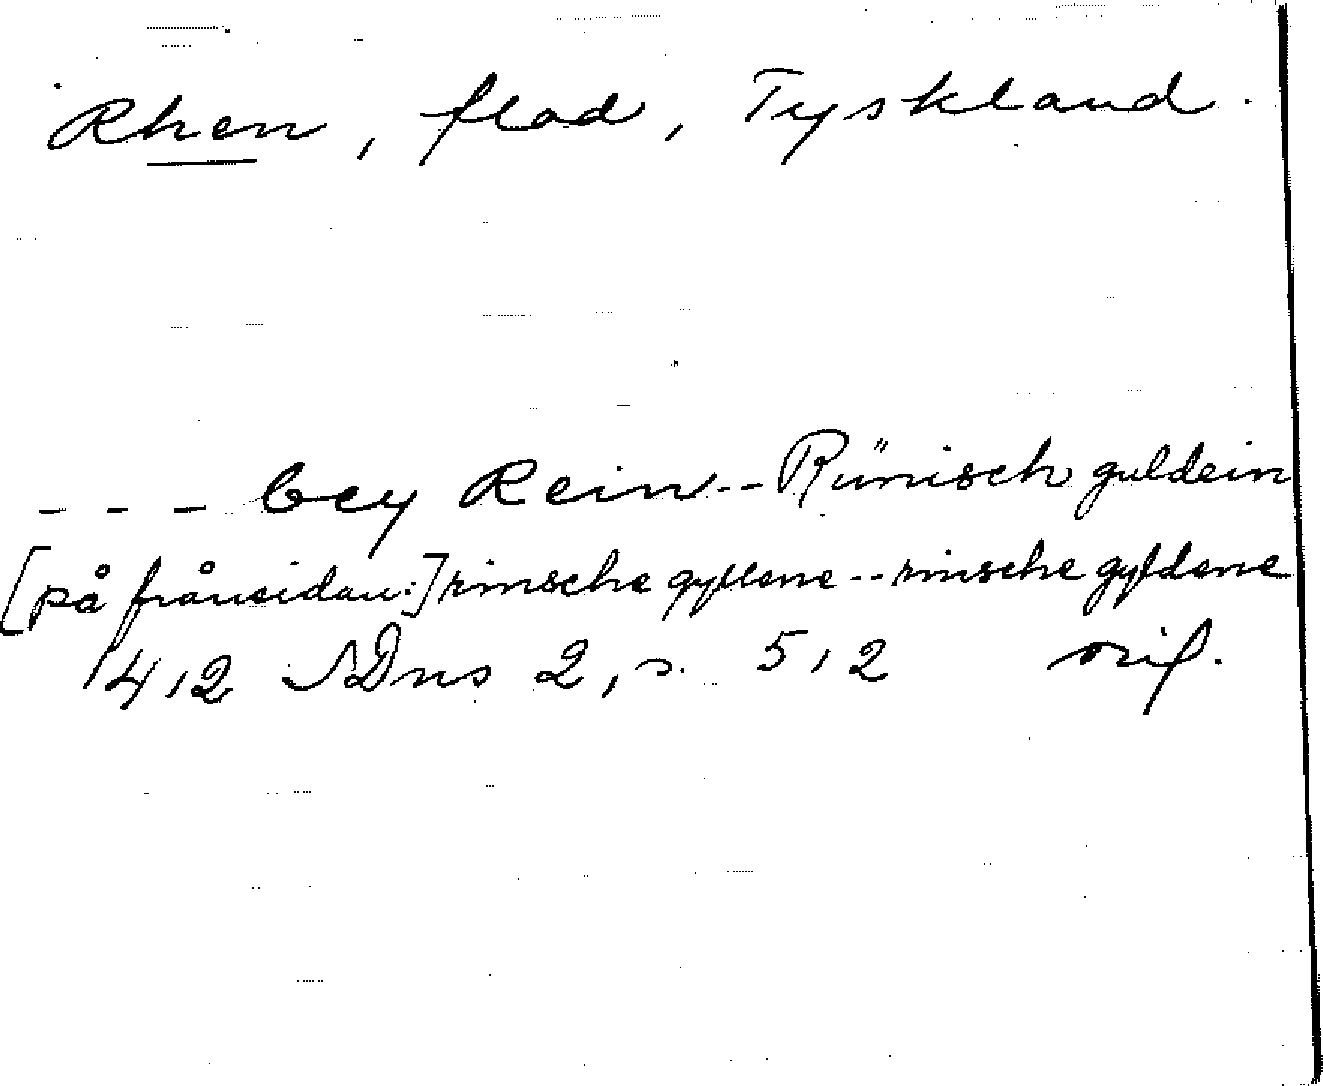 Rhen, flod, Tyskland.
- - - bey Rein -- Rünisch guldein
[på frånsidan:] rinsche gyllene -- rinsche gyldene
1412 SDns 2, s. 512 orig.